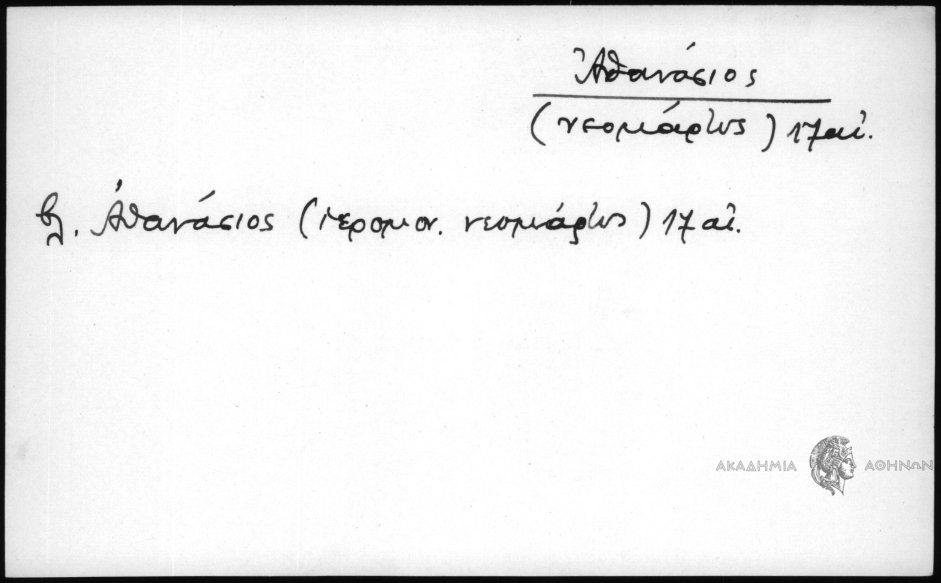 Ἀθανάσιος
(νεομάρτυς) 17 αἰ.
βλ. Ἀθανάσιος (ἱερομον. νεομάρτυς) 17 αἰ.
ΑΚΑΔΗΜΙΑ ΑΘΗΝΩΝ